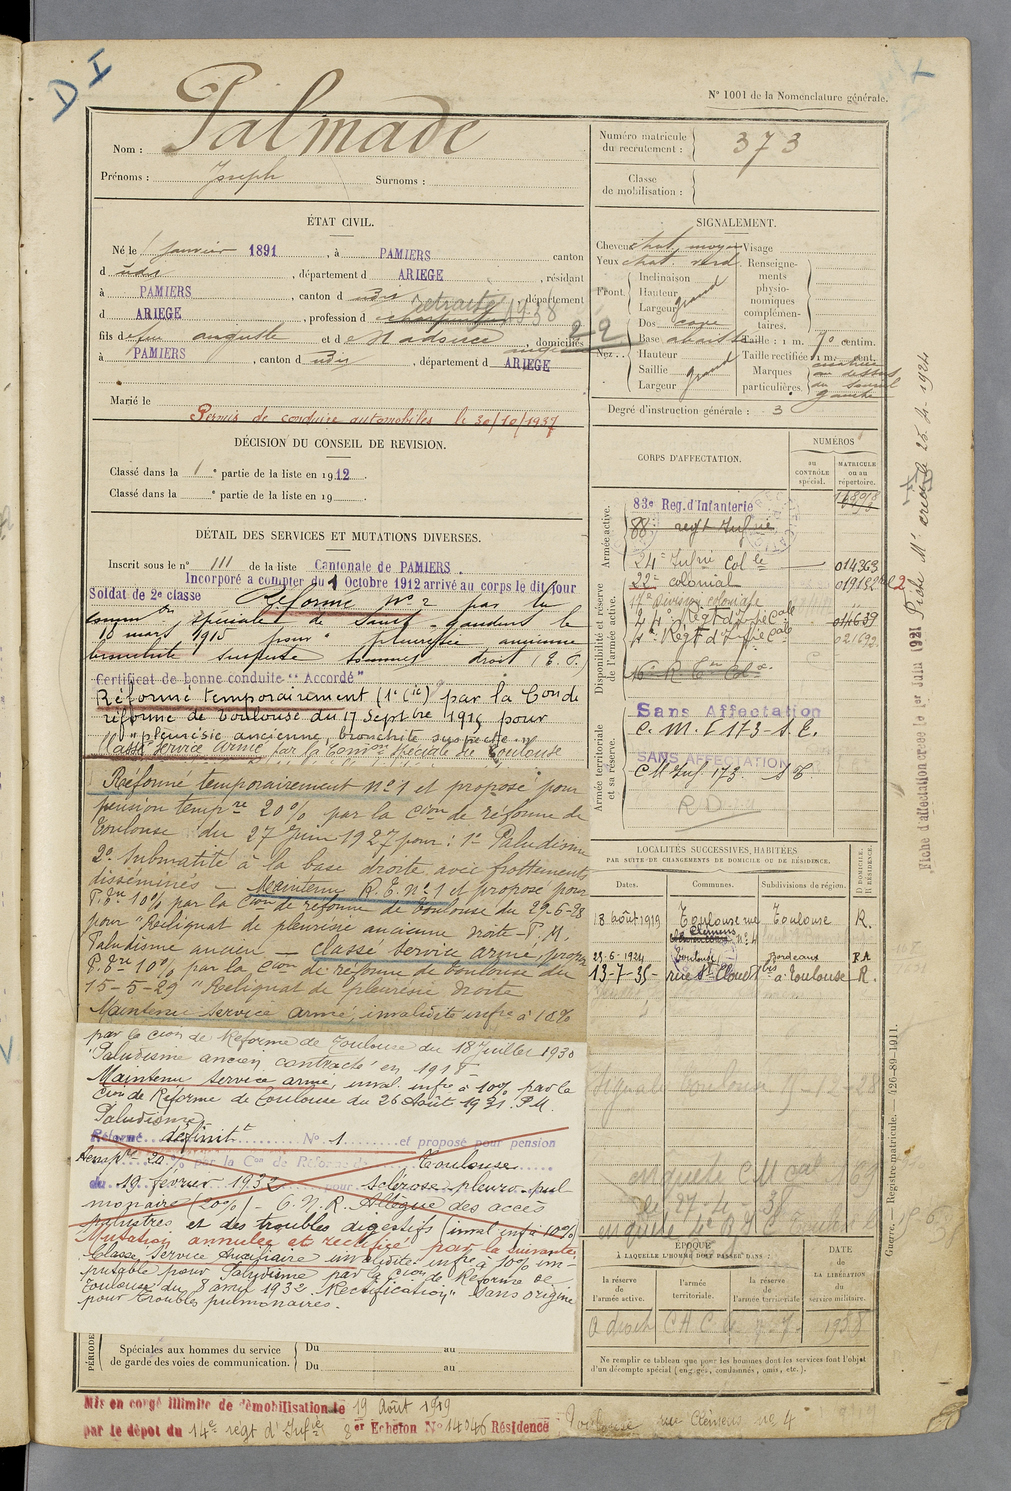 D I
N° 1001 de la Nomenclature générale.
Nom : Palmade
Prénoms : Joseph Surnoms :
Numéro matricule du recrutement : 373
Classe de mobilisation :
ÉTAT CIVIL.
Né le 1 janvier 1891, à PAMIERS canton
d udis, département d ARIEGE, résidant
à PAMIERS, canton d udis, département
d ARIEGE, profession d retraité 1938
fils de feu auguste et de domiciliés
à PAMIERS, canton d udis, département d ARIEGE
Marié le
Permis de conduire automobiles le 30/10/1937
SIGNALEMENT.
Cheveux chat. moyen Visage
Yeux chat. verd Renseignements physionomiques complémentaires.
Front : Inclinaison
Hauteur
Largeur grand
Nez : Dos cave
Base abaissée Taille : 1 m. 70 centim.
Hauteur Taille rectifiée : 1 m. cent.
Saillie Marques particulières.
Largeur grand
cicatrice au dessus du sourcil gauche
22
Degré d'instruction générale : 3
DÉCISION DU CONSEIL DE REVISION.
Classé dans la 1e partie de la liste en 1912.
Classé dans la e partie de la liste en 19
DÉTAIL DES SERVICES ET MUTATIONS DIVERSES.
Inscrit sous le n° 111 de la liste Cantonale de PAMIERS.
Incorporé à compter du 1 Octobre 1912 arrivé au corps le dit jour
Soldat de 2e classe Réformé n° 2 par la
comm on spéciale de Saint-Gaudens le
18 mars 1915 pour " pleurésie ancienne
bronchite suspecte sommet droit (E. P.)
Certificat de bonne conduite "Accordé"
Réformé temporairement (1e Cie) par la Con de
réforme de Toulouse du 17 Septbre 1916 pour
"pleurésie ancienne, bronchite suspecte"
Classé service armé par la Comon spéciale de Toulouse
Réformé temporairement n° 1 et proposé pour
pension tempre 20% par la Cion de réforme de
Toulouse du 27 Juin 1927 pour : 1° Paludisme
2° Submatité à la base droite avec frottements
disséminés — Maintenu R.T. n° 1 et proposé pour
P. Tre 10% par la Cion de réforme de Toulouse du 29-6-28
pour "Reliquat de pleurésie ancienne droite - P.M.
Paludisme ancien — classé Service armé, propos
P. Tre 10% par la Cion de réforme de Toulouse du
15-5-29 "Reliquat de pleurésie droite
Maintenu service armé, invalidité infre à 10%
par la Cion de Réforme de Toulouse du 18 Juillet 1930
"Paludisme ancien, contracté en 1918 —
Maintenu service armé, inval. infre à 10% par la
Cion de Réforme de Toulouse du 26 Août 1931. P.M.
Paludisme
Réformé définitt N° 1 et proposé pour pension
tempre 20% par la Con de Réforme de Toulouse
du 19 février 1932 pour Sclérose pleuro-pul
monaire (20%) - C.N.R. Allègue des accès
palustres et des troubles digestifs (inval infre à 10%)
Mutation annulée et rectifiée par la suivante
Classé Service Auxiliaire invalidité infre à 10% im-
putable pour Paludisme par la Cion de Réforme de
Toulouse du 8 avril 1932. Rectification "Sans origine
pour troubles pulmonaires.
CORPS D'AFFECTATION.
NUMÉROS
au CONTRÔLE spécial.
MATRICULE ou au répertoire.
Armée active.
83e Reg. d'Infanterie
88e regt Infrie
24e Infrie Colle 014363
22e colonial 019182
16e Division coloniale
Disponibilité et réserve de l'armée active.
44e Regt d'Infie Cale 014639
4e Regt d'Infie Cale 021692
Armée territoriale et sa réserve.
Sans Affectation
C. M. I 173 - S.E.
SANS AFFECTATION
CM Inf. 173. S E
Fiche d'affectation créée le 1er Juin 1921
LOCALITÉS SUCCESSIVES, HABITÉES
PAR SUITE DE CHANGEMENTS DE DOMICILE OU DE RÉSIDENCE.
Dates. Communes. Subdivisions de région. D. DOMICILE. R. RÉSIDENCE.
18 août 1919 Toulouse rue Clémens n° 4 Toulouse R.
23-6-1924 Toulouse Bordeaux R.A
13-7-35 - rue St Cloud bis à Toulouse R.
enquete CM Gal 169
le 27-4-38
ÉPOQUE
À LAQUELLE L'HOMME DOIT PASSER DANS :
la réserve de l'armée active.
l'armée territoriale.
la réserve de l'armée territoriale
DATE DE LA LIBÉRATION du service militaire.
a droit C A C 1938
Ne remplir ce tableau que pour les hommes dont les services font l'objet d'un décompte spécial (engagés, condamnés, omis, etc.).
Guerre. — Registre matricule. — 426-89-1911.
PÉRIODE
Spéciales aux hommes du service de garde des voies de communication.
Du au
Du au
Mis en congé illimité de démobilisation le 19 Août 1919
par le dépôt du 14e régt d'Infie 8er Echelon N° 14046 Résidence Toulouse rue Clémens n° 4